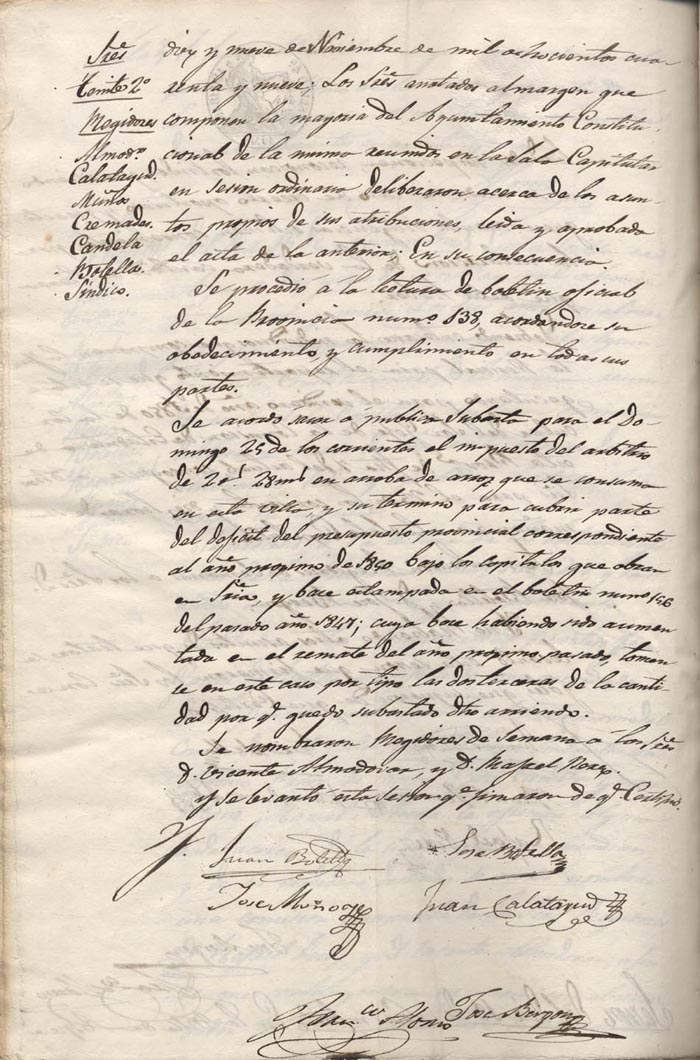 Sres
Tente 2º
Regidores
Almodr.
Calatayud.
Muños
Cremades.
Candela
Botella.
Síndico.
diez y nueve de Noviembre de mil ochocientos cua-
renta y nueve: Los Sres anotados al margen que
componen la mayoria del Ayuntamiento Constitu-
cional de la misma reunidos en la Sala Capitular
en sesion ordinaria deliberaron acerca de los asun-
tos propios de sus atribuciones, leida y aprobada
el acta de la anterior; En su consecuencia.
Se procedio a la lectura de boletin oficial
de la Provincia numo 138, acordandose su
obedecimiento, y cumplimiento en todas sus
partes.
Se acordo sacar a publica Subasta para el Do-
mingo 25 de los corrientes el impuesto del arbitrio
de 2 rs 28 ms en arroba de arroz que se consuma
en esta villa, y su termino para cubrir parte
del deficit del presupuesto provincial correspondiente
al año proximo de 1850 bajo los capitulos que obran
en Sria, y base estampada en el boletin numo 146
del pasado año 1847; cuya base habiendo sido aumen-
tada en el remate del año proximo pasado, tomen-
se en este caso por tipo las dos terceras de la canti-
dad por q. quedo subastado dho arriendo.
Se nombraron Regidores de Semana a los Sres
D. Vicente Almodovar, y D. Rafael
Y se levanto esta sesion q. firmaron de q. Certifico.
Juan Botella
Jose Botella
Jose Muños
Juan Calatayud
Franco Alonso
Jose